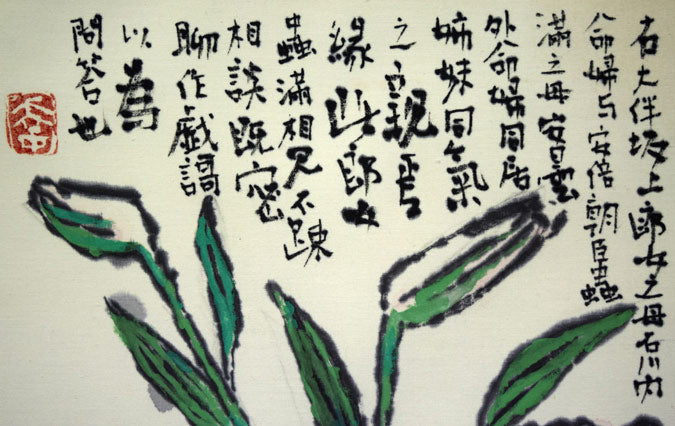 右大伴坂上郎女之母石川内
命婦与安倍朝臣蟲
滿之母安曇
外命婦同居
姉妹同氣
之親焉
緣此郎女
蟲滿相見不踈
相談既密
聊作戯謌
以為
問答也